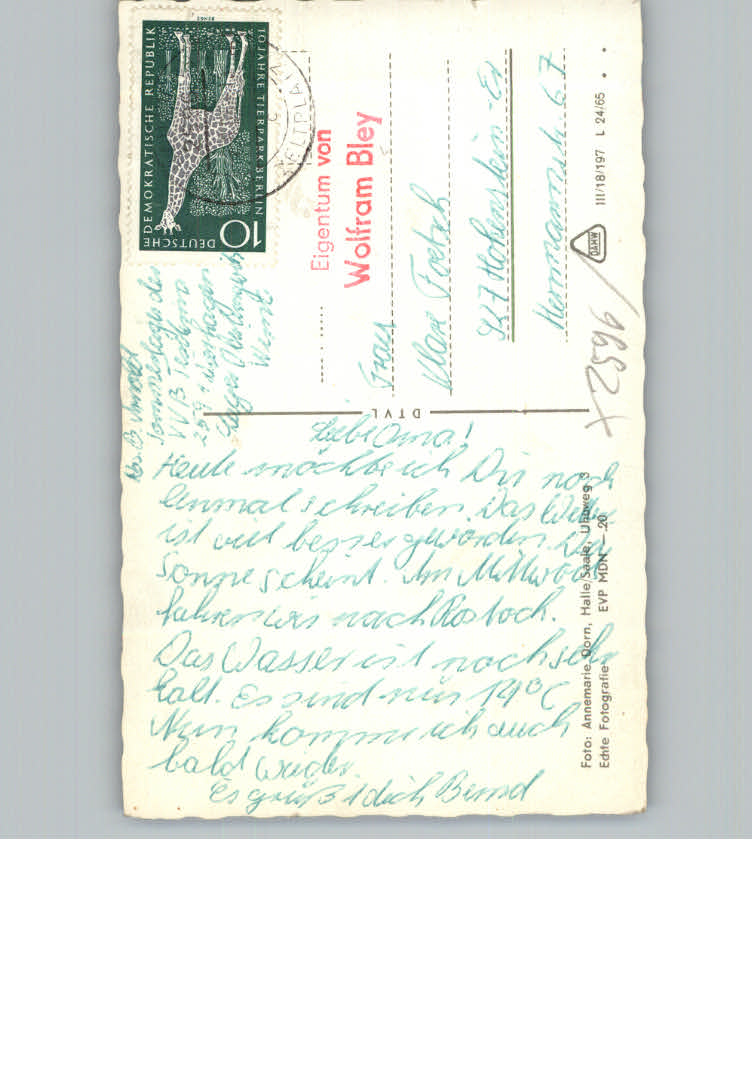 Liebe Oma!
Heute möchte ich Dir noch
einmal schreiben. Das Wetter
ist viel besser geworden. Die
Sonne scheint. Am Mittwoch
fahren wir nach Rostock.
Das Wasser ist noch sehr
kalt. Es sind nur 19°C
Nun komme ich auch
bald wieder.
Es grüßt dich Bernd
DTVL
Frau
Hohenstein-Er
Hermannstr. 67
Eigentum von
Wolfram Bley
10 JAHRE TIERPARK BERLIN
DEUTSCHE
DEMOKRATISCHE REPUBLIK
10
VVB
Lager
2596
Foto: Annemarie Dorn, Halle/Saale, Uhuweg 3
Echte Fotografie EVP MDN -.20
III/18/197 L 24/65
DAMW